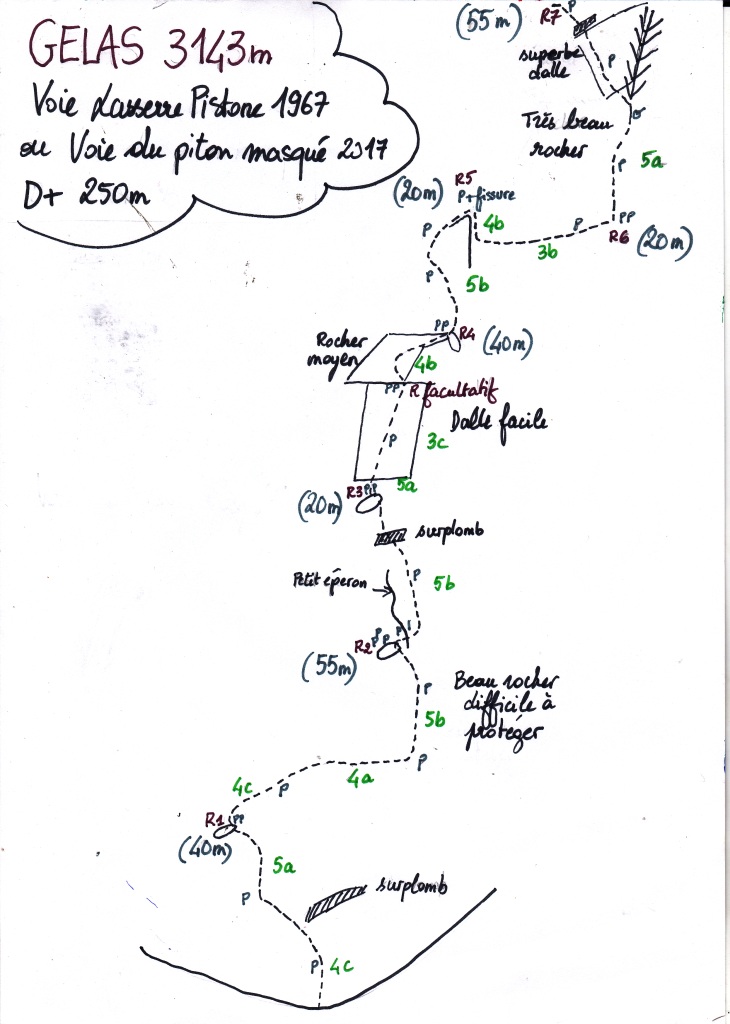 GELAS 3143m
Voie Lasserre Pistone 1967
ou Voie du piton masqué 2017
D+ 250m
(55m) R7 P
superbe
dalle
P
Très beau
rocher
P
5a
PP
R6 (20m)
P
3b
4b
(20m) R5
P+fissure
P
P
5b
PP
R4 (40m)
Rocher
moyen
4b
PP R facultatif
Dalle facile
P
3c
5a
R3 PP
(20m)
surplomb
P
5b
Petit éperon
R2 P P P
(55m)
Beau rocher
difficile à
protéger
P
5b
P
4a
P
4c
R1 PP
(40m)
5a
P
surplomb
P 4c